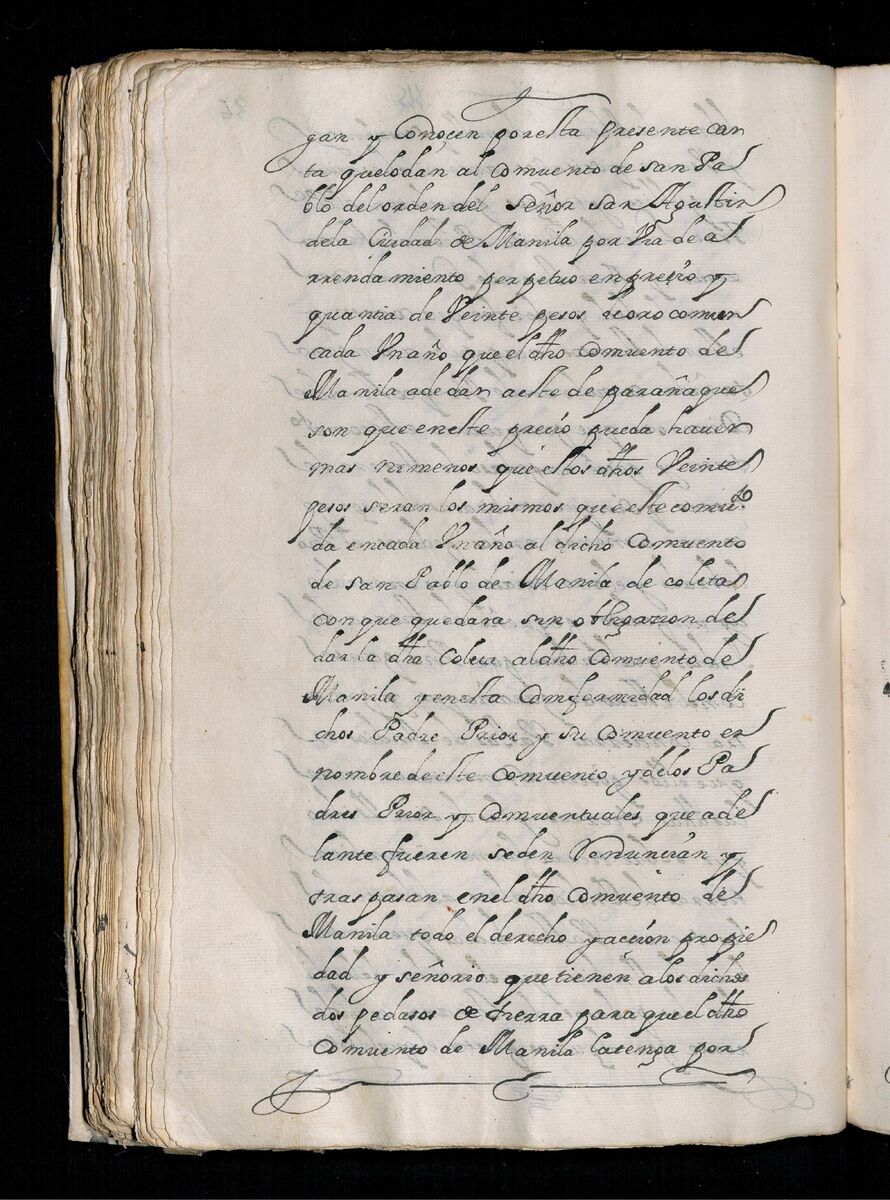 gan y Conoçen por esta presente car
ta que lo dan al Comvento de san Pa
blo del orden del Señor san Agustin
dela Ciudad de Manila por Via de a
rrendamiento perpetuo en preçio y
quantia de Veinte pesos de oro comun
cada Un año que el dho Comvento de
Manila a de dar a este de parañaque
son que en este preçio pueda haver
mas ni menos que estos dhos Veinte
pesos seran los mismos que este comvto
da en cada Un año al dicho Comvento
de san Pablo de Manila de coleta
con que quedara sin obligazion de
dar la dha Coleta al dho Comvento de
Manila y en esta Comformidad los di
chos Padre Prior y su Comvento en
nombre de este comvento y de los Pa
dres Prior y Comventuales que ade
lante fueren seden Renunçian y
traspasan en el dho Comvento de
Manila todo el derecho y acçion propie
dad y señorio que tienen a los dichos
dos pedasos de tierra para que el dho
Comvento de Manila la tenga por